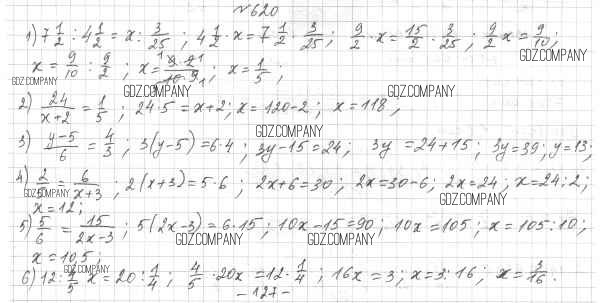 №620
1) 7 1/2 : 4 1/2 = x : 3/25 ; 4 1/2 · x = 7 1/2 · 3/25 ; 9/2 · x = 15/2 · 3/25 ; 9/2 x = 9/10 ;
GDZ.COMPANY
x = 9/10 : 9/2 ; x = 9·2/10·9 ; x = 1/5 ;
GDZ.COMPANY
GDZ.COMPANY GDZ.COMPANY
2) 24/x+2 = 1/5 ; 24·5 = x+2 ; x = 120-2 ; x = 118 ,
GDZ.COMPANY
3) y-5/6 = 4/3 ; 3(y-5) = 6·4 ; 3y-15 = 24 ; 3y = 24+15 ; 3y = 39 ; y = 13 ;
4) 2/5 = 6/x+3 ; 2(x+3) = 5·6 ; 2x+6 = 30 ; 2x = 30-6 ; 2x = 24 ; x = 24:2 ;
GDZ.COMPANY GDZ.COMPANY
x = 12 ;
5) 5/6 = 15/2x-3 ; 5(2x-3) = 6·15 ; 10x-15 = 90 ; 10x = 105 ; x = 105:10 ;
GDZ.COMPANY GDZ.COMPANY
x = 10,5 ;
GDZ.COMPANY
6) 12 : 4/5 x = 20 : 1/4 ; 4/5 · 20x = 12 · 1/4 ; 16x = 3 ; x = 3:16 ; x = 3/16 .
- 127 -